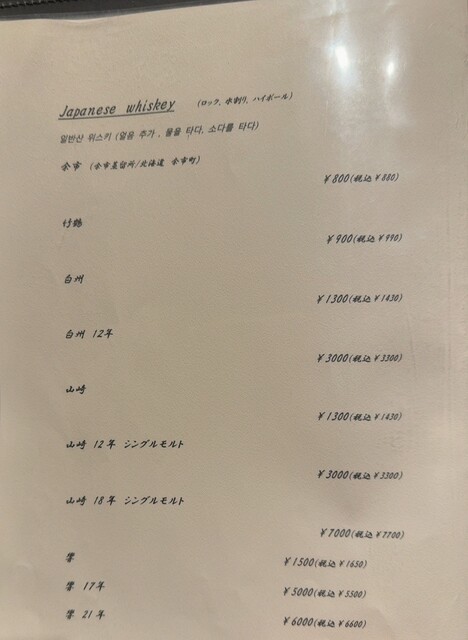 Japanese whiskey (ロック, 水割り, ハイボール)
일반산 위스키 (얼음 추가 , 물을 타다, 소다를 타다)
余市 (余市蒸留所/北海道 余市町)
¥800(税込¥880)
竹鶴
¥900(税込¥990)
白州
¥1300(税込¥1430)
白州 12年
¥3000(税込¥3300)
山崎
¥1300(税込¥1430)
山崎 12年 シングルモルト
¥3000(税込¥3300)
山崎 18年 シングルモルト
¥7000(税込¥7700)
響 ¥1500(税込¥1650)
響 17年 ¥5000(税込¥5500)
響 21年 ¥6000(税込¥6600)